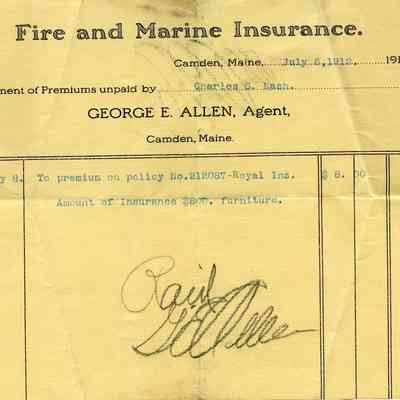 Fire and Marine Insurance.
Camden, Maine, July 5, 1912. 191
ment of Premiums unpaid by Charles S. Nash.
GEORGE E. ALLEN, Agent,
Camden, Maine.
y 8. To premium on policy No.212087-Royal Ins. $ 8. 00
Amount of Insurance $800. furniture.
Paid
G E Allen